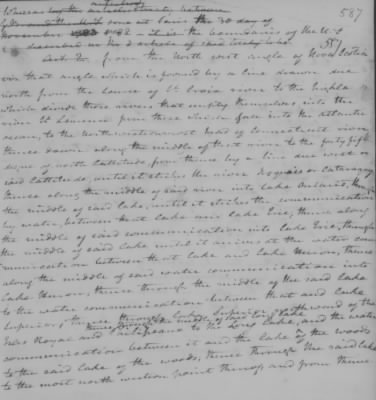 587
Whereas by the
November 1782 it is the boundaries of the U. S.
described in the 2 article of said treaty to be
587
Art. 2. from the North west angle of Nova Scotia
viz that angle which is formed by a line drawn due
north from the source of St Croix river to the highlands
which divide those rivers that empty themselves into the
river St Laurence from those which fall into the Atlantic
ocean, to the northwesternmost head of Connecticut river
thence down along the middle of that river to the forty fifth
degree of north Lattitude, from thence by a line due west on
said Lattitude, until it strikes the river Iroquois or Cataraquy
thence along the middle of said river into Lake Ontario, through
the middle of said lake, until it strikes the communication
by water, between that Lake and Lake Erie, thence along
the middle of said communication into Lake Erie, through
the middle of said Lake until it arrives at the water com
munication between that lake and Lake Huron, thence
along the middle of said water communication into
Lake Huron, thence through the middle of the said Lake
to the water communication between that and Lake
Superior, thence through Lake Superior northward of the
Isles Royal and
thence through the middle of said Long Lake
to the Long Lake, and the water
communication between it and the Lake of the woods
to the said Lake of the woods, thence through the said lake
to the most north western point thereof, and from thence